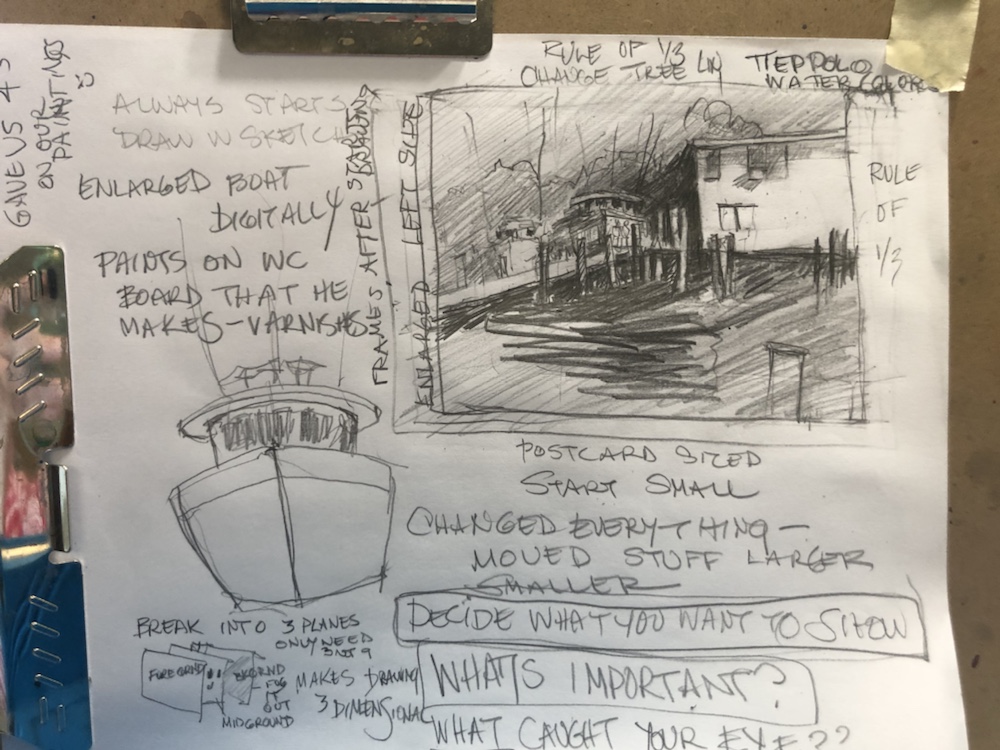 GAVE US 4 S
ON OUR
PAINTINGS
ALWAYS STARTS
DRAW W SKETCH
ENLARGED BOAT
DIGITALLY
PAINTS ON WC
BOARD THAT HE
MAKES - VARNISHES
FRAMES AFTER START
DRAWING
ENLARGED LEFT SIDE
RULE OF 1/3
CHANGE TREE LIN
TIEPPOLO
WATER COLORS
RULE
OF
1/3
POSTCARD SIZED
START SMALL
CHANGED EVERYTHING -
MOVED STUFF LARGER
SMALLER
DECIDE WHAT YOU WANT TO SHOW
WHAT'S IMPORTANT?
WHAT CAUGHT YOUR EYE??
BREAK INTO 3 PLANES
ONLY NEED
3 NOT 9
FOREGRND
BKGRND
FOG
IT
OUT
MIDGROUND
MAKES DRAWING
3 DIMENSIONAL